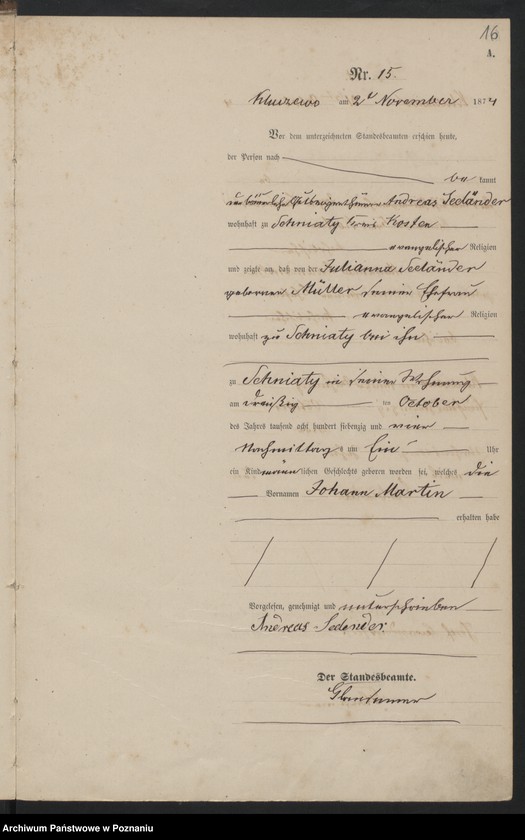 16
A.
Nr. 15
Kluczewo am 2t November 1874
Vor dem unterzeichneten Standesbeamten erschien heute,
der Person nach
be kannt
der bäuerliche Gutseigenthümer Andreas Seeländer
wohnhaft zu Schniaty Kreis Kosten
evangelischer Religion
und zeigte an, daß von der Julianna Seeländer
geborenen Müller seiner Ehefrau
evangelischer Religion
wohnhaft zu Schniaty bei ihm
zu Schniaty in seiner Wohnung
am dreißig ten October
des Jahres tausend acht hundert siebenzig und vier
Nachmittags um Ein Uhr
ein Kind männlichen Geschlechts geboren worden sei, welches die
Vornamen Johann Martin
erhalten habe
Vorgelesen, genehmigt und unterschrieben
Andreas Sedender.
Der Standesbeamte.
Archiwum Państwowe w Poznaniu